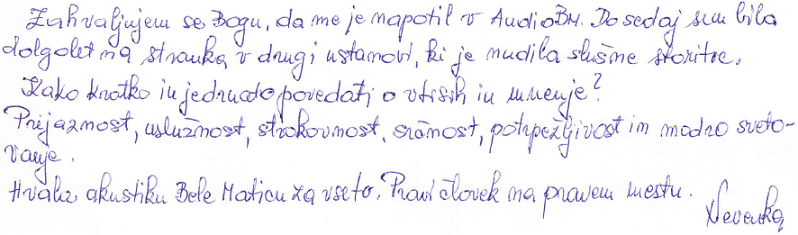 Zahvaljujem se Bogu, da me je napotil v AudioBM. Do sedaj sem bila
dolgoletna stranka v drugi ustanovi, ki je nudila slušne storitve.
Kako kratko in jednato povedati o vtisih in mnenje?
Prijaznost, uslužnost, strokovnost, srčnost, potrpežljivost in modro sveto-
vanje.
Hvala, akustiku Bele Maticu za vse to. Pravi človek na pravem mestu.
Nevenka